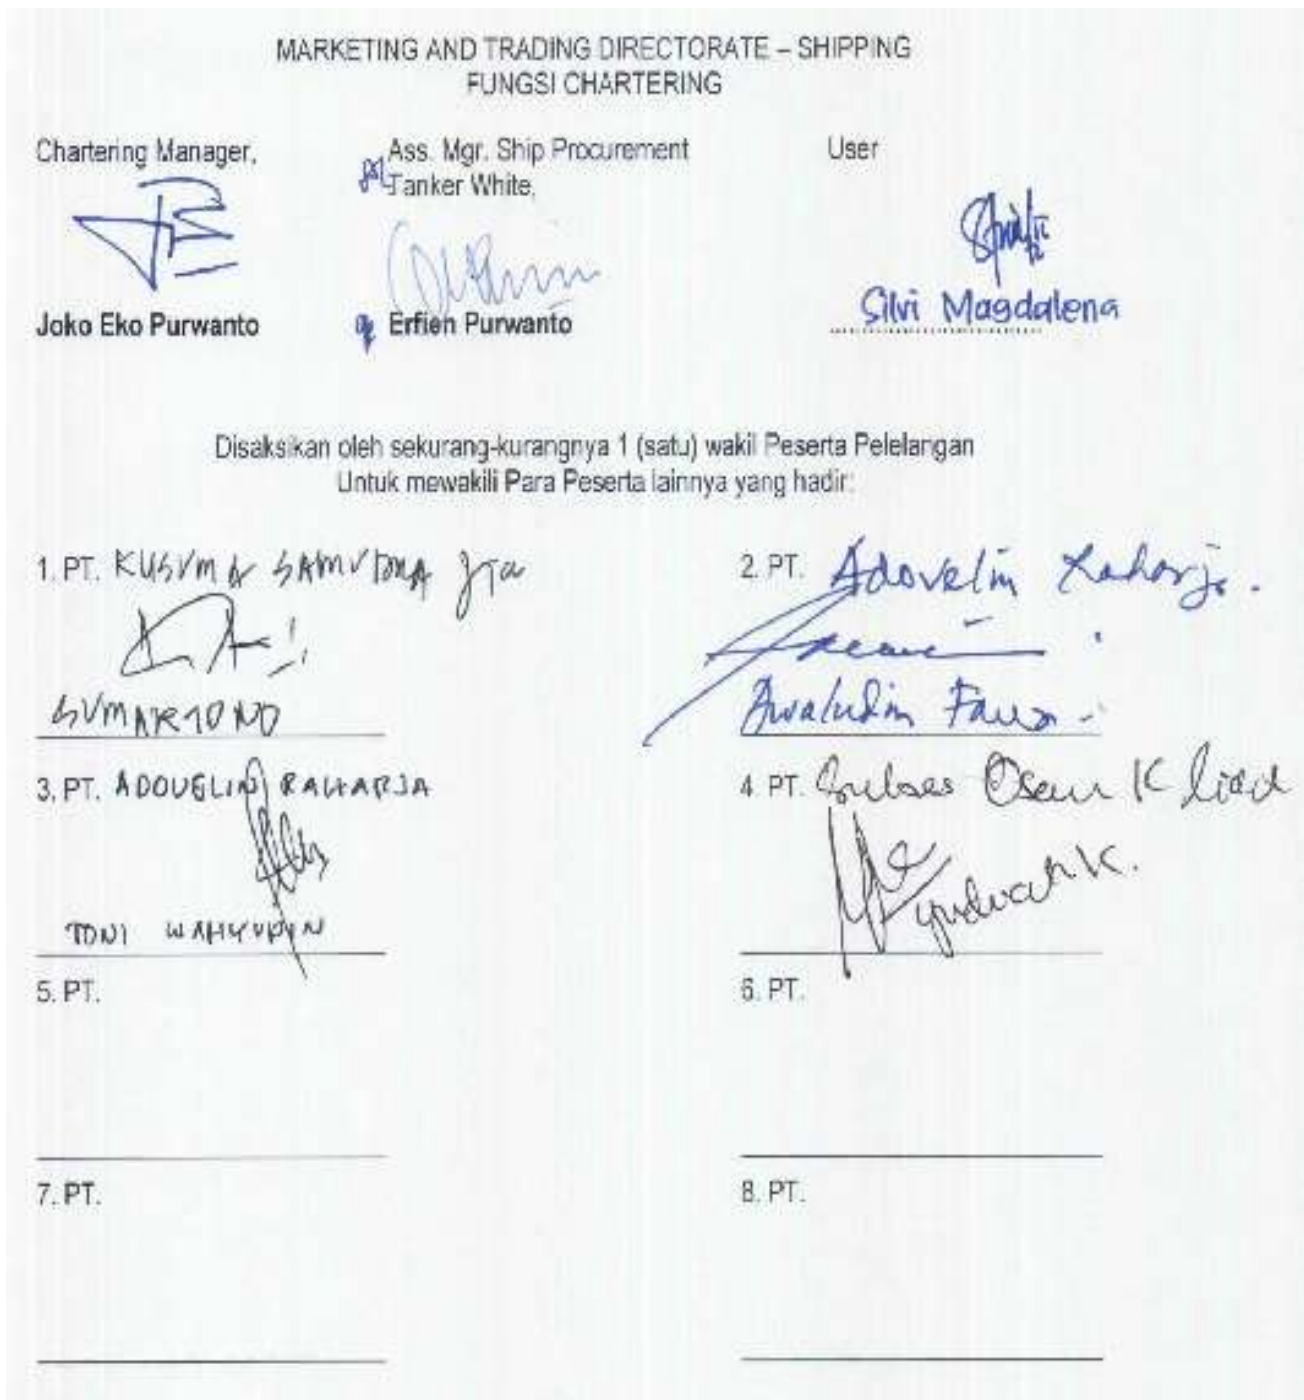 MARKETING AND TRADING DIRECTORATE – SHIPPING
FUNGSI CHARTERING
Chartering Manager,
Ass. Mgr. Ship Procurement
Tanker White,
User
Joko Eko Purwanto
Erfien Purwanto
Silvi Magdalena
Disaksikan oleh sekurang-kurangnya 1 (satu) wakil Peserta Pelelangan
Untuk mewakili Para Peserta lainnya yang hadir:
1. PT. KUSUMA SAMUDRA
2. PT. Adovelin Raharja.
SUMARTONO
Awaludin
3. PT. ADOVELIN RAHARJA
4. PT.
TONI WAHYUDIN
5. PT.
6. PT.
7. PT.
8. PT.